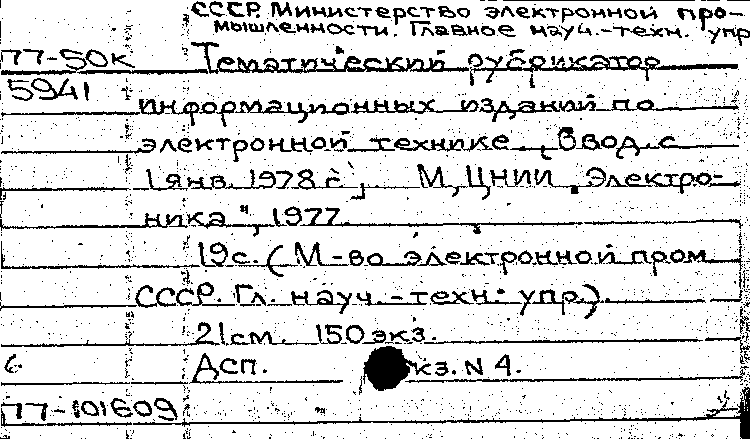 СССР. Министерство электронной про-
мышленности. Главное науч.-техн. упр
77-50к Тематический рубрикатор
5941 информационных изданий по
электронной технике. [Ввод. с
1 янв. 1978 г.]. М., ЦНИИ „Электро-
ника", 1977.
19 с. (М-во электронной пром
СССР. Гл. науч.-техн. упр.).
21 см. 150 экз.
Дсп. кз. N 4.
77-101609